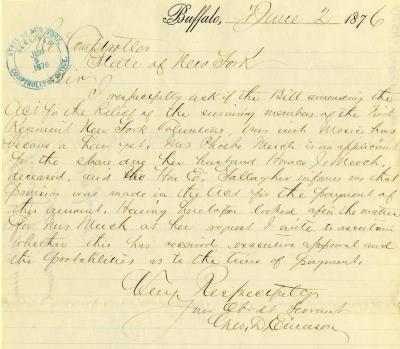 Buffalo, June 2 1876
Comptroller
State of New York
STATE OF NEW YORK
RECEIVED
JUN
5
1876
COMPTROLLER'S OFFICE.
Sir
I respectfully ask if the Bill amending the
Act for the Relief of the surviving members of the First
Regiment New York Volunteers, War with Mexico has
become a Law yet. Mrs Phoebe Meech is an applicant
for the share due her husband Horace J. Meech,
deceased, and the Wm E. Gallagher informs me that
provision was made in the Act for the payment of
this amount. Having heretofore looked after the matter
for Mrs Meech at her request I write to ascertain
whether this has received executive approval and
the probabilities as to the time of payment.
Very Respectfully
Your Obdt Servant
Geo. D. Emerson